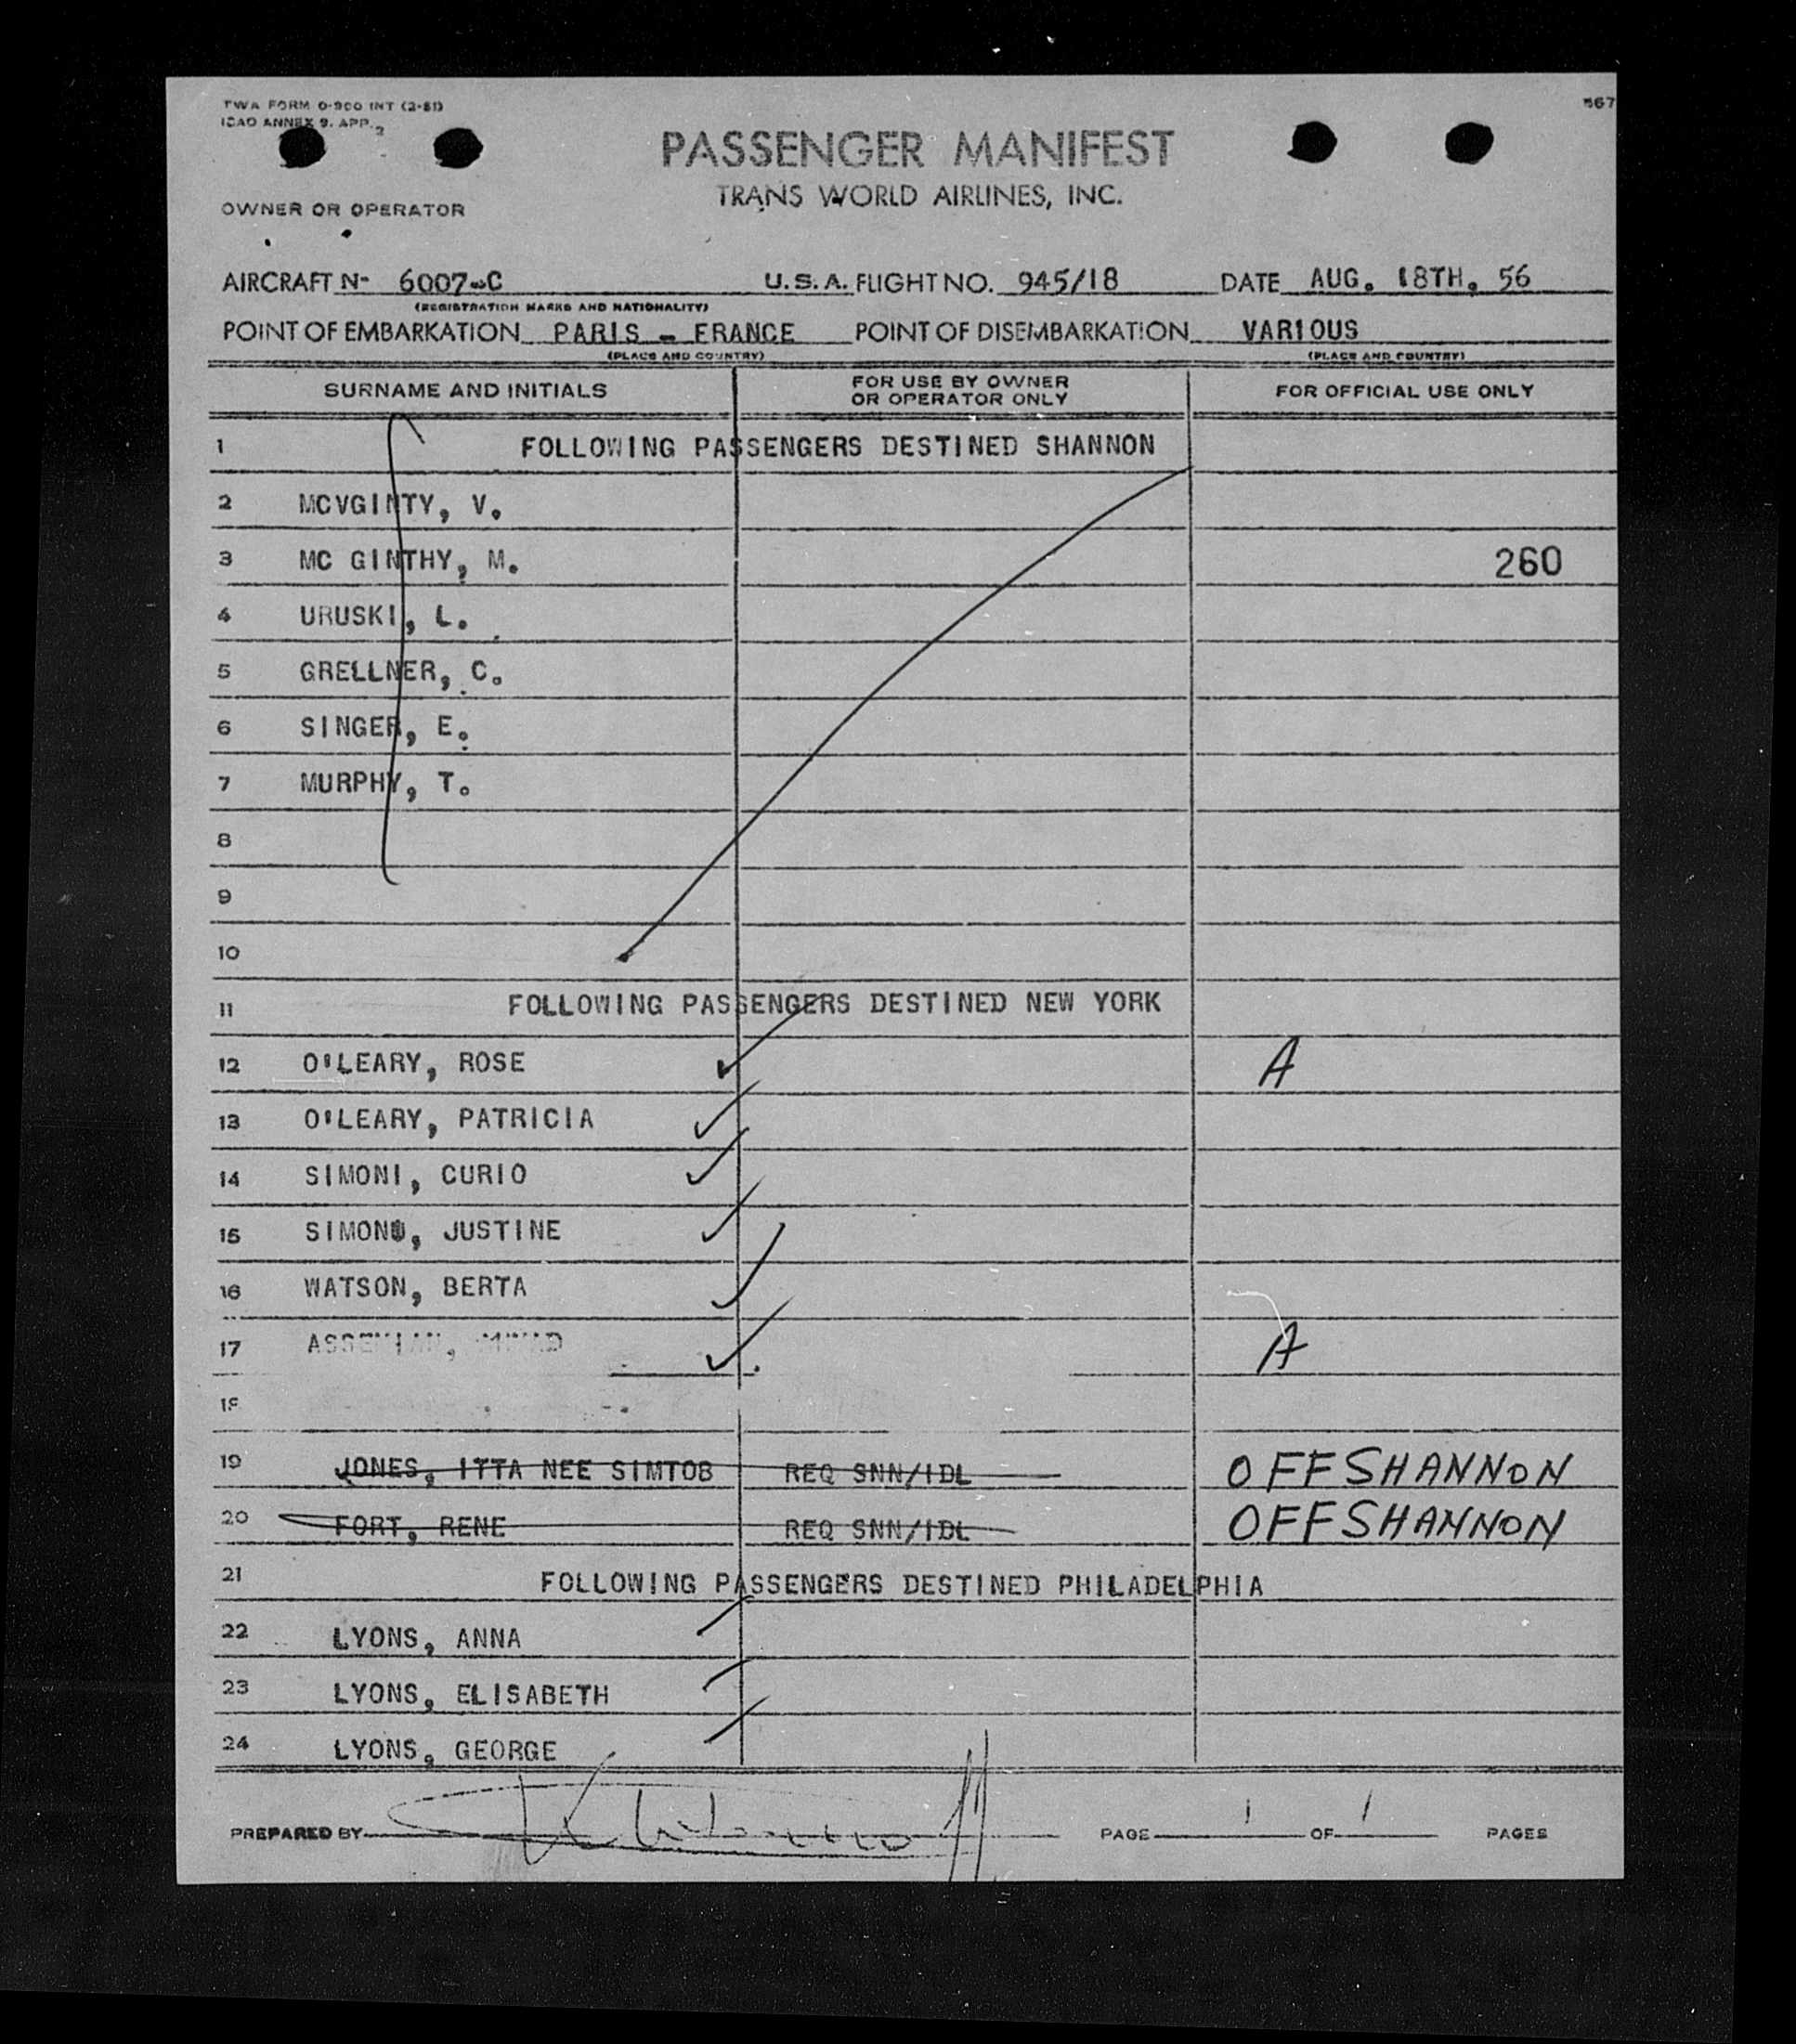 TWA FORM 0-900 INT (2-51)
ICAO ANNEX 9. APP. 2
567
PASSENGER MANIFEST
TRANS WORLD AIRLINES, INC.
OWNER OR OPERATOR
AIRCRAFT N- 6007-C U.S.A. FLIGHT NO. 945/18 DATE AUG. 18TH. 56
(REGISTRATION MARKS AND NATIONALITY)
POINT OF EMBARKATION PARIS - FRANCE POINT OF DISEMBARKATION VARIOUS
(PLACE AND COUNTRY) (PLACE AND COUNTRY)
SURNAME AND INITIALS FOR USE BY OWNER OR OPERATOR ONLY FOR OFFICIAL USE ONLY
1 FOLLOWING PASSENGERS DESTINED SHANNON
2 MCVGINTY, V.
3 MC GINTHY, M. 260
4 URUSKI, L.
5 GRELLNER, C.
6 SINGER, E.
7 MURPHY, T.
8
9
10
11 FOLLOWING PASSENGERS DESTINED NEW YORK
12 O'LEARY, ROSE A
13 O'LEARY, PATRICIA
14 SIMONI, CURIO
15 JUSTINE
16 WATSON, BERTA
17 A
18
19 JONES, ITTA NEE SIMTOB REQ SNN/IDL OFF SHANNON
20 FORT, RENE REQ SNN/IDL OFF SHANNON
21 FOLLOWING PASSENGERS DESTINED PHILADELPHIA
22 LYONS, ANNA
23 LYONS, ELISABETH
24 LYONS, GEORGE
PREPARED BY PAGE 1 OF 1 PAGES